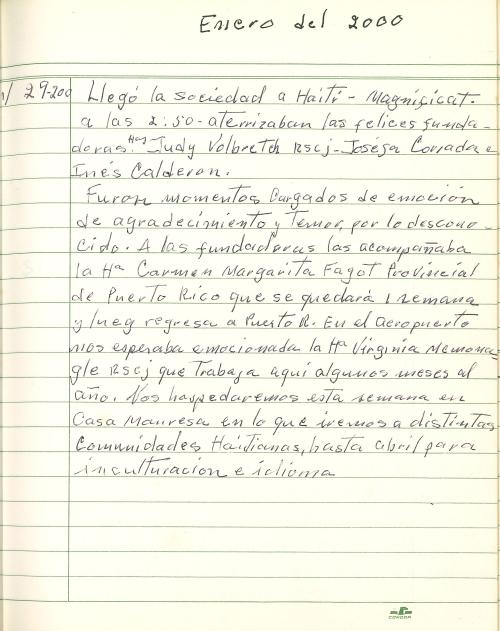 Enero del 2000
29-200 Llegó la sociedad a Haití - Magnificat.
a las 2:50- aterrizaban las felices funda-
doras Has Judy Volbretch RSCJ- Josefa Corrada e
Inés Calderon.
Furon momentos Cargados de emoción
de agradecimiento y Temor, por lo descono-
cido. A las fundadoras las acompañaba
la Ha Carmen Margarita Fagot Provincial
de Puerto Rico que se quedará 1 semana
y lueg regresa a Puerto R. En el Aeropuerto
nos esperaba emocionada la Ha Virginia Memona
gle RSCJ que Trabaja aquí algunos meses al
año. Nos hospedaremos esta semana en
Casa Manresa en lo que iremos a distintas
Comunidades Haitianas, hasta abril para
inculturación e idioma
CONDOR